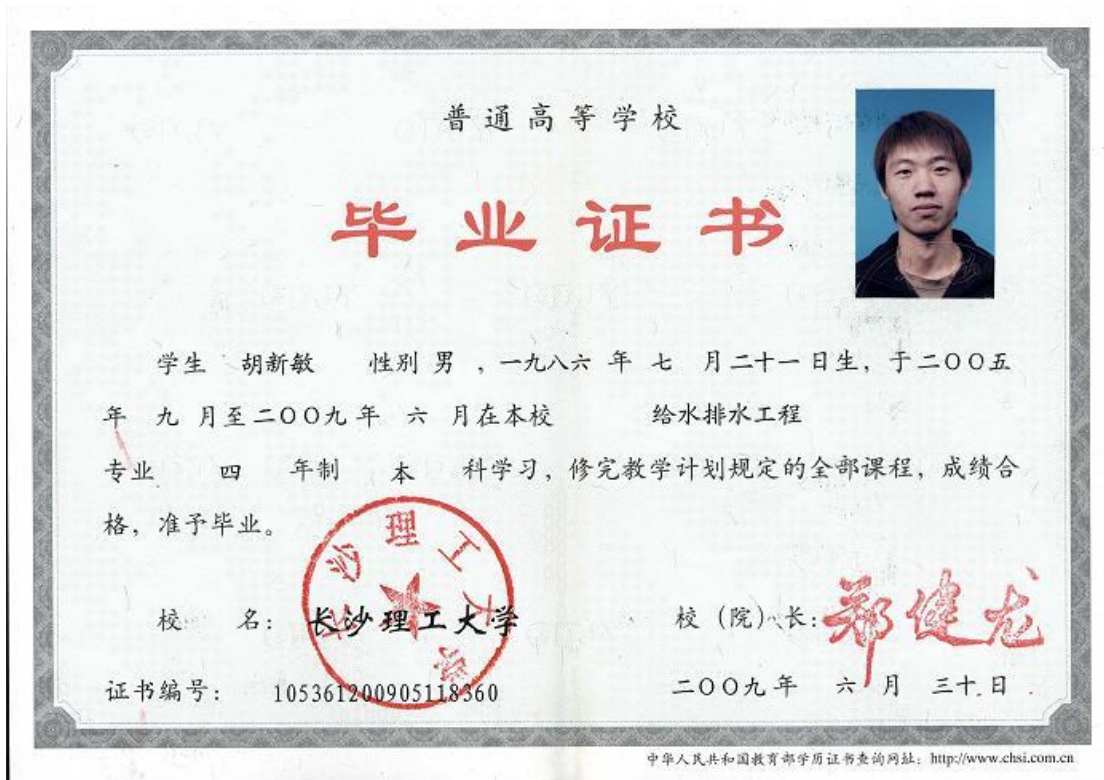 普通高等学校
毕业证书
学生 胡新敏 性别 男 ，一九八六 年 七 月二十一日生，于二〇〇五
年 九 月至二〇〇九年 六 月在本校 给水排水工程
专业 四 年制 本 科学习，修完教学计划规定的全部课程，成绩合
格，准予毕业。
长沙理工大学
校 名：长沙理工大学
校（院）长：郑健龙
证书编号： 105361200905118360
二〇〇九年 六 月 三十 日
中华人民共和国教育部学历证书查询网址：http://www.chsi.com.cn